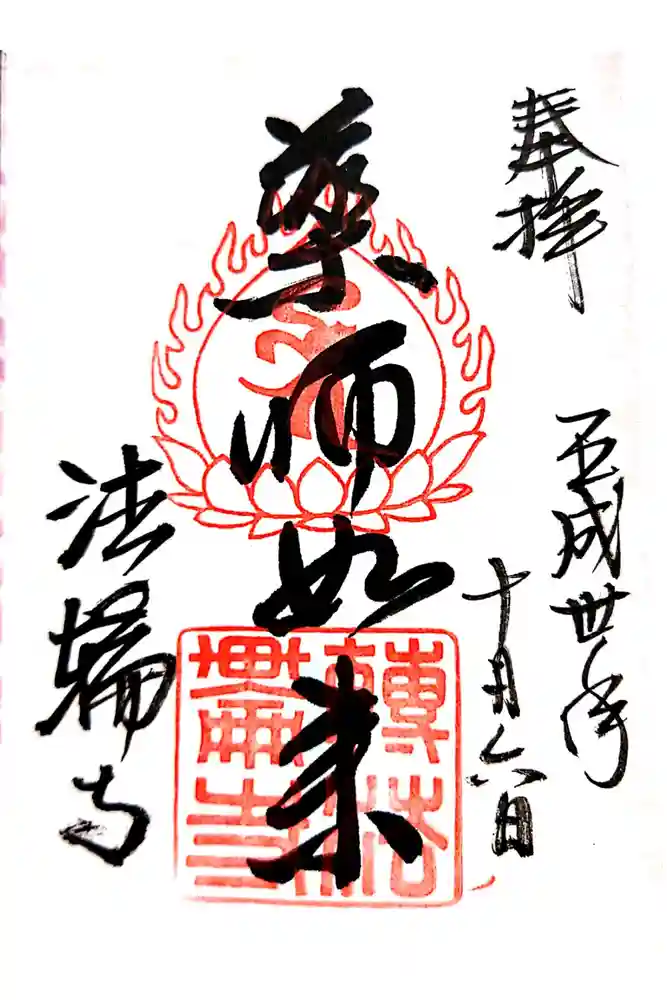 奉拝
平成卅年
十月六日
薬師如来
法輪寺